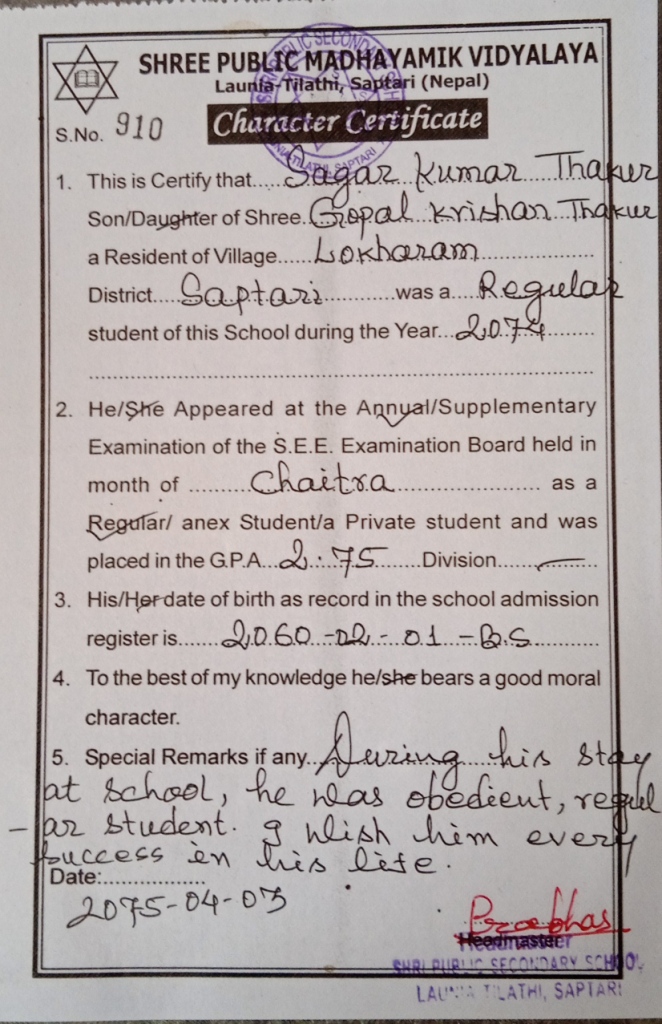 SHREE PUBLIC MADHAYAMIK VIDYALAYA
Launia-Tilathi, Saptari (Nepal)
S.No. 910
Character Certificate
1. This is Certify that.....Sagar Kumar Thakur
Son/Daughter of Shree.Gopal Krishan Thakur
a Resident of Village......Lokharam..................
District....Saptari............was a....Regular
student of this School during the Year...2074.......
2. He/She Appeared at the Annual/Supplementary
Examination of the S.E.E. Examination Board held in
month of ..........Chaitra...................... as a
Regular/ anex Student/a Private student and was
placed in the G.P.A...2.75.......Division.....—
3. His/Her date of birth as record in the school admission
register is.......2060-02-01-B.S.........
4. To the best of my knowledge he/she bears a good moral
character.
5. Special Remarks if any..During his stay
at school, he was obedient, regul
-ar student. I wish him every
success in his life.
Date:.................
2075-04-03
Headmaster
SHRI PUBLIC SECONDARY SCHOOL
LAUNIA TILATHI, SAPTARI